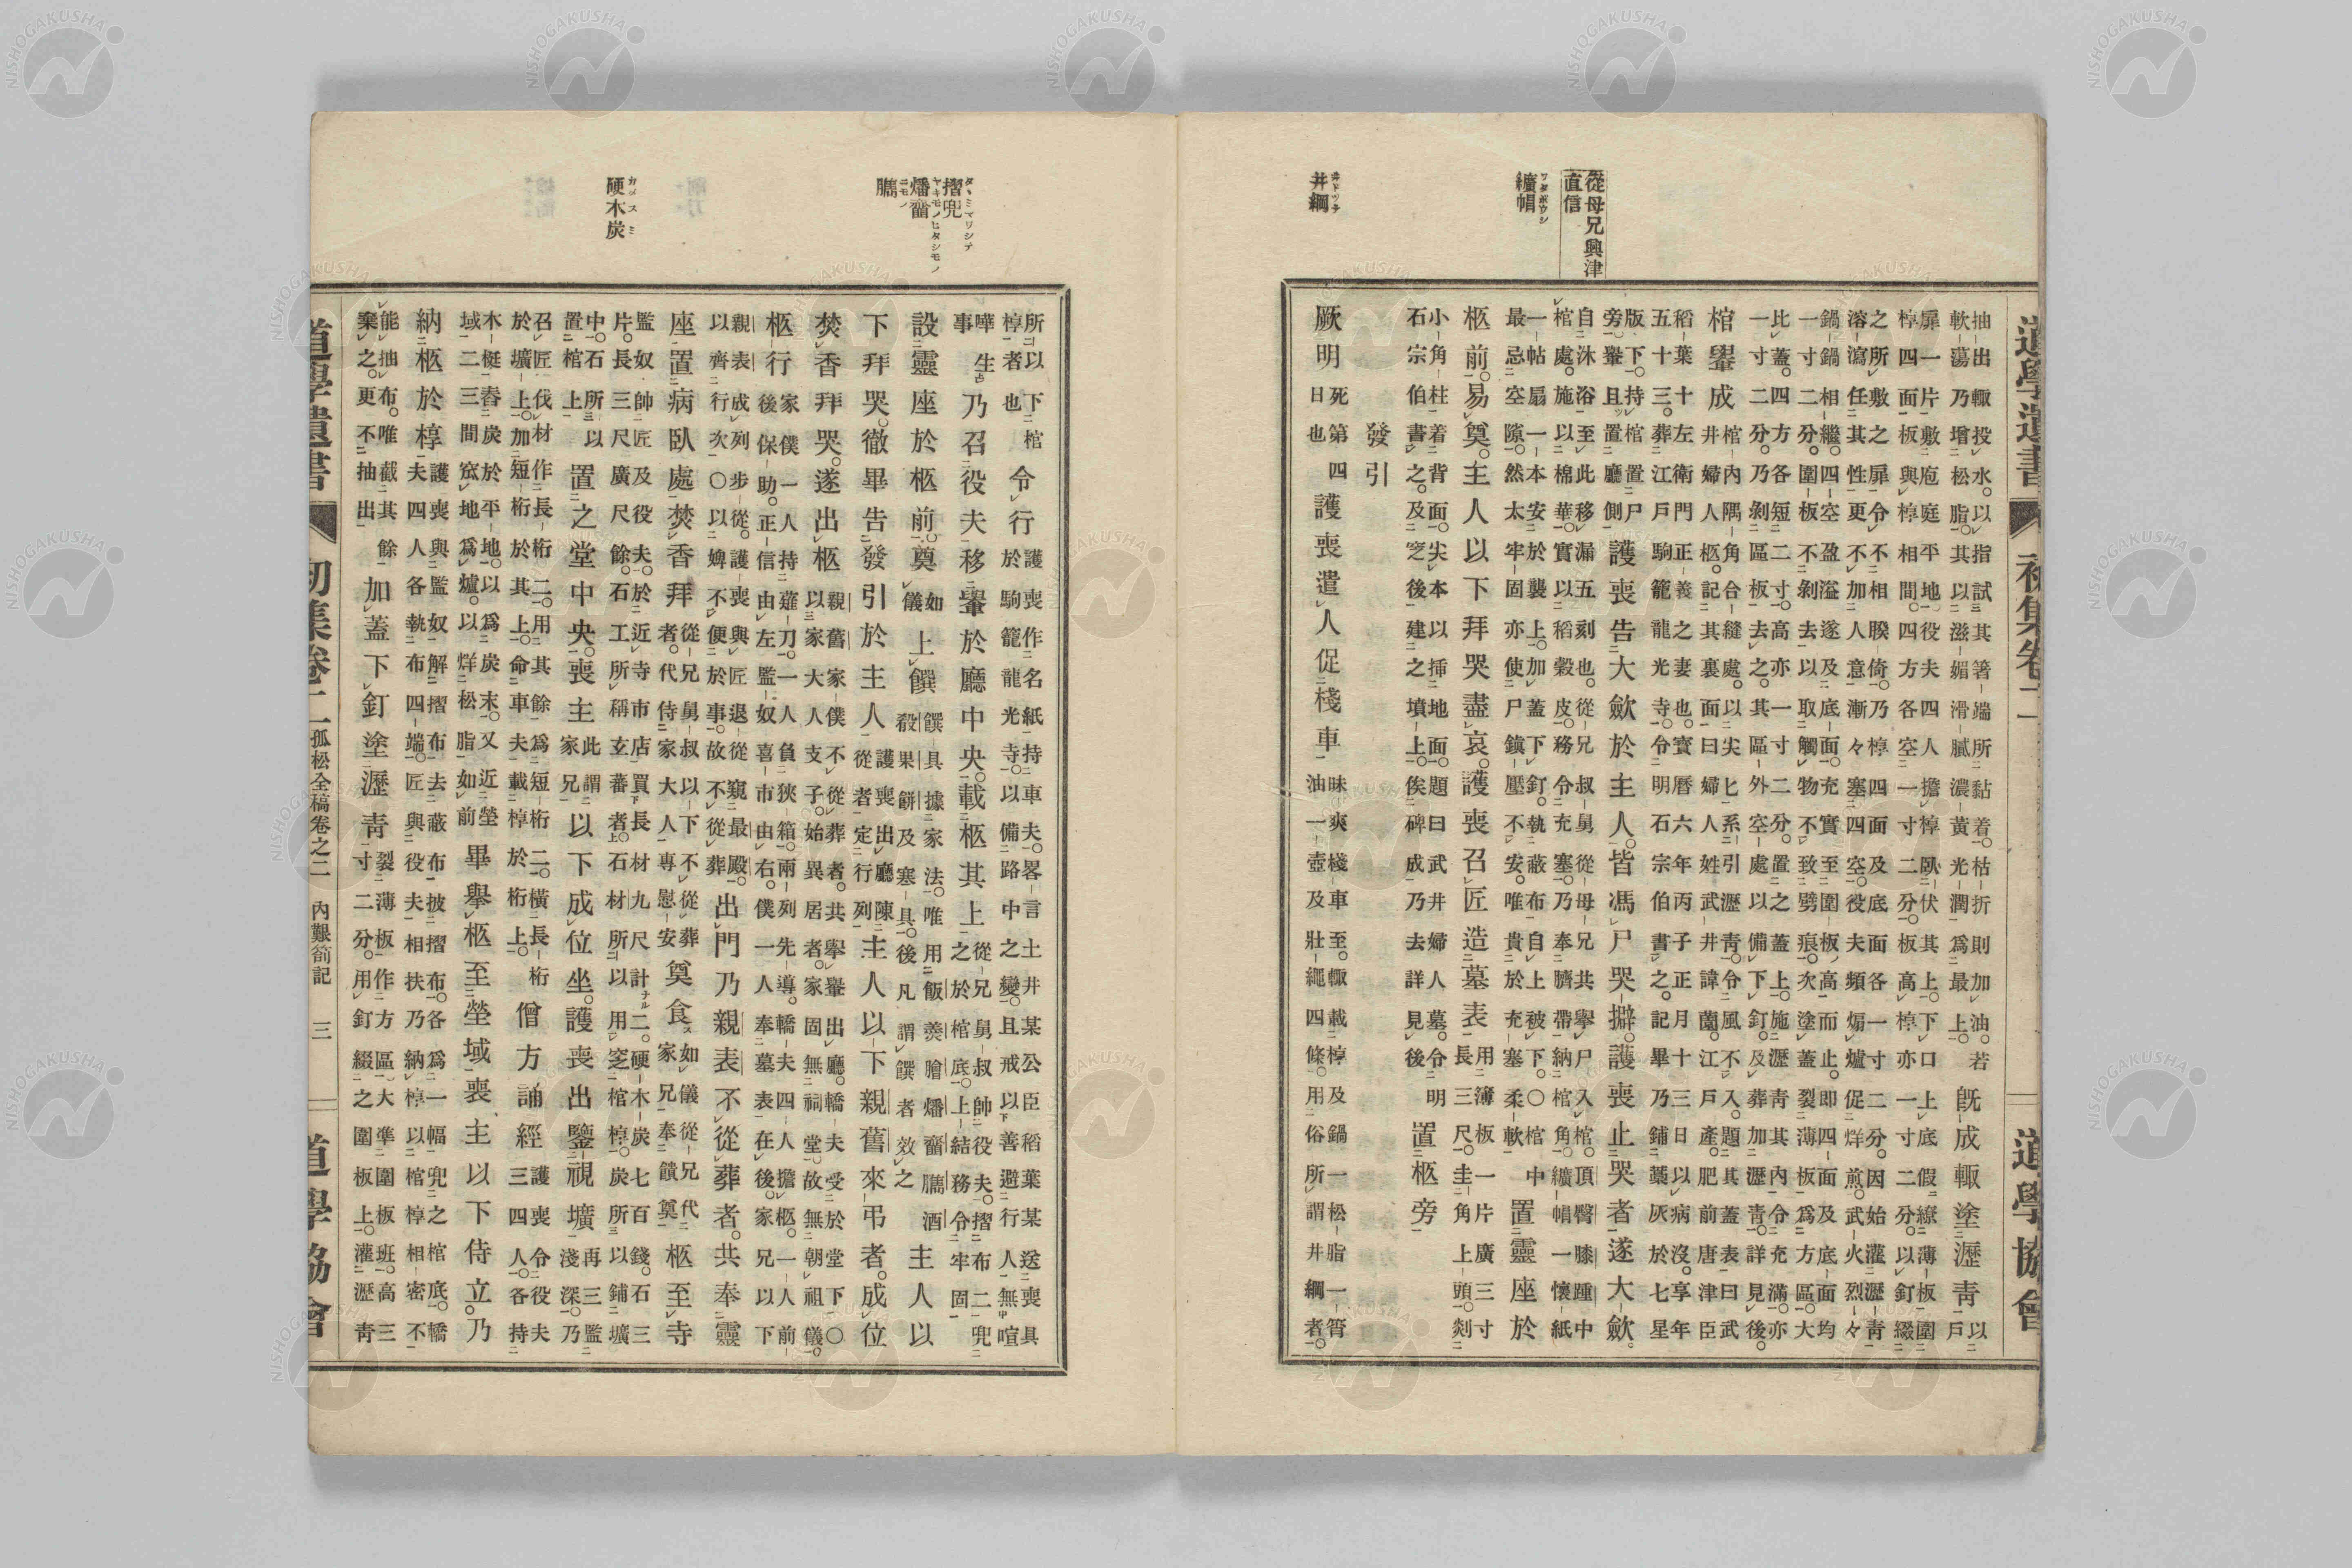 道學遺書 初集卷二 道學協會
從母兄興津
直信
纊帽
ワタボウシ
井綱
井トツナ
抽出輙投水。以指試其箸端所黏着。枯折則加油。若
軟蕩乃增松脂。其以滋媚滑膩濃黃光潤爲最上。
旣成輙塗瀝靑
以
戶
扉一片敷庖庭平地。役夫四人擔椁臥伏其上。下口上底假繚薄板圍
椁四面板與椁相間。四方各空一寸二分。板高椁亦一寸二分。以釘綴
之所敷之扉令不相睽倚。乃椁四面及底面各一寸二分。因始灌瀝靑
溶瀉任其性更不加人意漸々塞四空。役夫頻煽爐促烊煎。武火烈々
鍋一鍋相繼。四空盈溢遂及底面。充實至圍板高而止。即四面及底面均
一寸二分。圍板不剝去以取觸物不致劈痕次塗蓋裂薄板爲方區。大
比蓋。四方各短二寸。高亦一寸二分。置之蓋上。施瀝靑其內令充滿。亦
一寸二分。乃剝區板去之。其區外空處以備下釘及葬加瀝靑。詳見後
棺轝成
棺內隅角合縫處。以尖匕系引瀝靑。令風不入。題其蓋表曰武
井婦人柩記其裏面曰婦人姓武井諱蘭江戶產肥前唐津臣
稻葉十左衛門正義之妻也。寶曆六年丙子正月十三日以病沒。享年
五十三。葬江戶駒籠龍光寺。令明石宗伯書之。記畢乃鋪藁灰於七星
版下。持棺置尸
旁。轝且置廳側
護喪告大歛於主人。皆馮尸哭擗。護喪止哭者遂大歛。
自沐浴至此移漏五刻也。從兄叔舅從母兄共擧尸入棺。頂臀膝踵中
棺處。施以棉華。實以稻穀皮。務令充塞。乃奉臍帶納棺角。纊帽一懷紙
一帖扇一本安於襲上。加蓋下釘。執蔽布自上被下。○棺中
最忌空隙。然太牢固亦使尸鎭壓不安。唯貴於充塞柔軟
置靈座於
柩前。易奠。主人以下拜哭盡哀。護喪召匠造墓表
用薄板一片廣三寸
長三尺。圭角上頭。剡
小角柱着背面。尖本以揷地面。題曰武井婦人墓。令明
石宗伯書之。及窆後建之墳上。俟碑成乃去詳見後
置柩旁
發引
厥明
死第四
日也
護喪遣人促棧車
昧爽棧車至。輙載椁及鍋一松脂一筲
油一壺及壯繩四條。用俗所謂井綱者。
摺兜
タヽミマリシテ
燔
ヤキモノヒタシモノ
臇
ニモノ
硬木炭
カタスミ
所以下棺
椁者也
令行
護喪作名紙持車夫。畧言土井某公臣稻葉某送喪具
於駒籠龍光寺。以備路中之變。且戒以善避行人無喧
嘩生
事
乃召役夫移轝於廳中央。載柩其上
從兄舅叔帥役夫。摺布二兜
之於棺底。上結務令牢固
設靈座於柩前。奠
如
儀
上饌
饌具據家法。唯用飯羹膾燔臇酒
殽果餅及寒具。後凡謂饌者效之
主人以
下拜哭。徹畢告發引於主人
護喪出廳陳
從者定行列
主人以下親舊來弔者。成位
焚香拜哭。遂出柩
親舊家僕不從葬者。共擧轝出廳。轎夫受於堂下。○
以家大人支子。始異居者。家固無祠堂。故無朝祖儀。
柩行
家僕一人持薙刀。一人負狹箱。兩列先導。轎夫四人擔柩。一人前
後保助。正信由左監奴喜市由右。僕一人奉墓表在後。家兄以下
親表成列步從。護喪與匠退從窺最殿。
以齊行次○以婢不便於事。故不從葬
出門乃親表不從葬者。共奉靈
座置病臥處焚香拜
從兄舅叔以下不從葬
者。代侍家大人專慰安
奠食
如儀從兄代
家兄奉饋奠
柩至寺
監奴帥匠及役夫。於近寺市店買長材九尺計二。硬木炭七百錢。石三
片。長三尺廣尺餘。石工所稱玄蕃者。石材所以用窆棺椁。炭所以鋪壙
中。石所以
置棺上
置之堂中央。喪主
此謂
家兄
以下成位坐。護喪出鑒視壙
再三監
淺深。乃
召匠伐材作長桁二。用其餘爲短桁二。橫長桁
於壙上。加短桁於其上。命車夫載椁於桁上。
僧方誦經
護喪令役夫
三四人。各持
木梃舂炭於平地。以爲炭末。又近塋
域二三間窊地爲爐。以烊松脂如前
畢擧柩至塋域喪主以下侍立。乃
納柩於椁
護喪與監奴解摺布去蔽布披摺布。各爲一幅兜之棺底。轎
夫四人各執布四端。匠與役夫相扶乃納椁以棺椁相密不
能抽布。唯截其餘
棄之。更不抽出
加蓋下釘塗瀝靑
裂薄板作方區、大準圍板班。高三
寸二分。用釘綴之圍板上。灌瀝靑
道學遺書 初集卷二 孤松全稿卷之二 內艱箚記 三 道學協會
NISHOGAKUSHA